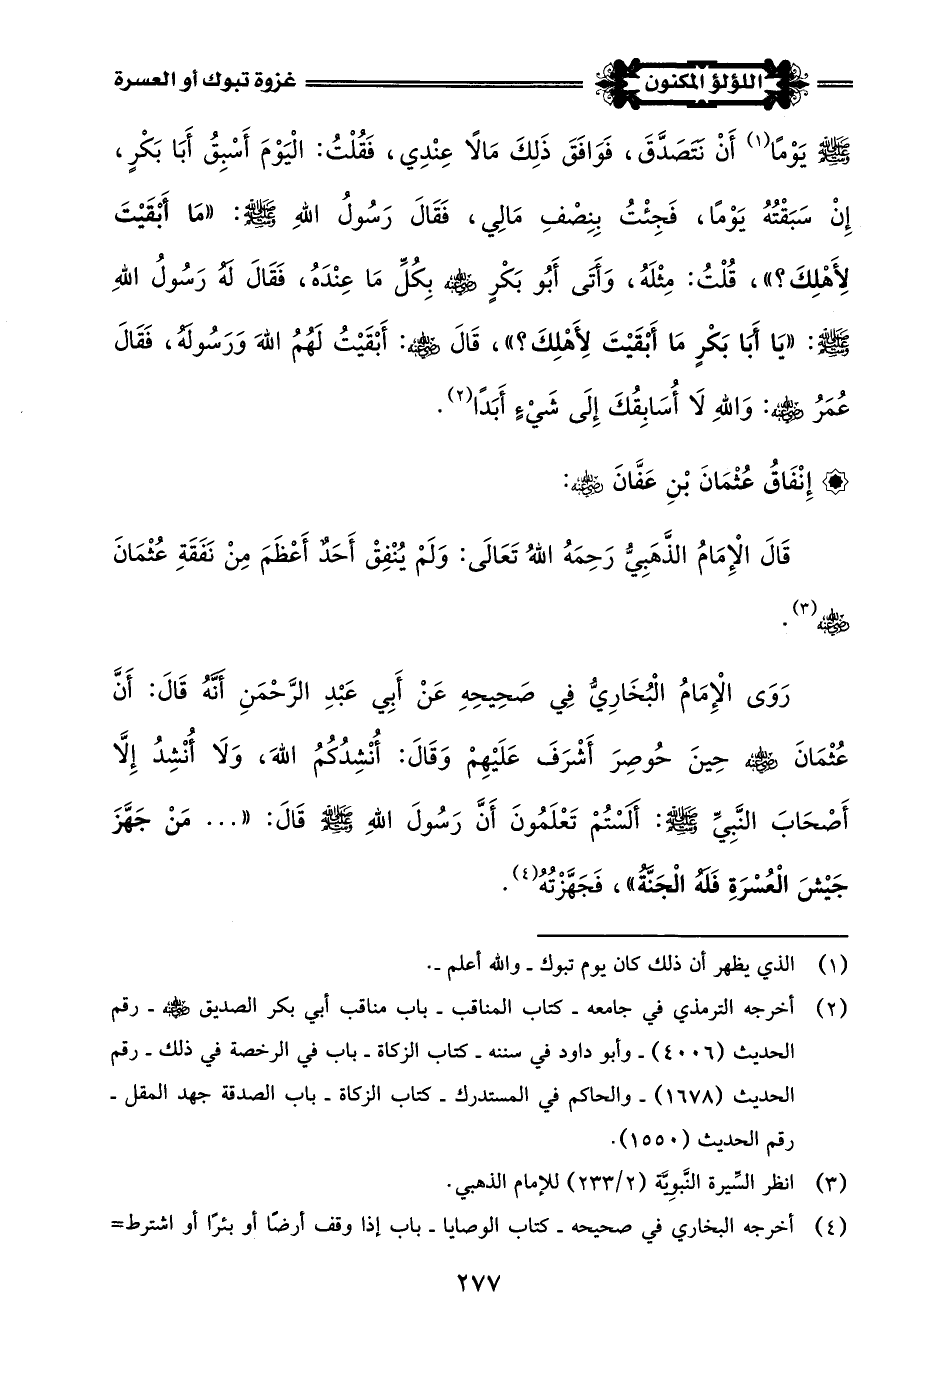 اللؤلؤ المكنون
غزوة تبوك أو العسرة
ﷺ يَوْمًا(١) أَنْ نَتَصَدَّقَ، فَوَافَقَ ذَلِكَ مَالًا عِنْدِي، فَقُلْتُ: الْيَوْمَ أَسْبِقُ أَبَا بَكْرٍ،
إِنْ سَبَقْتُهُ يَوْمًا، فَجِئْتُ بِنِصْفِ مَالِي، فَقَالَ رَسُولُ اللهِ ﷺ: «مَا أَبْقَيْتَ
لِأَهْلِكَ؟»، قُلْتُ: مِثْلَهُ، وَأَتَى أَبُو بَكْرٍ رضي الله عنه بِكُلِّ مَا عِنْدَهُ، فَقَالَ لَهُ رَسُولُ اللهِ
ﷺ: «يَا أَبَا بَكْرٍ مَا أَبْقَيْتَ لِأَهْلِكَ؟»، قَالَ رضي الله عنه: أَبْقَيْتُ لَهُمُ اللهَ وَرَسُولَهُ، فَقَالَ
عُمَرُ رضي الله عنه: وَاللهِ لَا أُسَابِقُكَ إِلَى شَيْءٍ أَبَدًا(٢).
إِنْفَاقُ عُثْمَانَ بْنِ عَفَّانَ رضي الله عنه:
قَالَ الْإِمَامُ الذَّهَبِيُّ رَحِمَهُ اللهُ تَعَالَى: وَلَمْ يُنْفِقْ أَحَدٌ أَعْظَمَ مِنْ نَفَقَةِ عُثْمَانَ
رضي الله عنه(٣).
رَوَى الْإِمَامُ الْبُخَارِيُّ فِي صَحِيحِهِ عَنْ أَبِي عَبْدِ الرَّحْمَنِ أَنَّهُ قَالَ: أَنَّ
عُثْمَانَ رضي الله عنه حِينَ حُوصِرَ أَشْرَفَ عَلَيْهِمْ وَقَالَ: أُنْشِدُكُمُ اللهَ، وَلَا أُنْشِدُ إِلَّا
أَصْحَابَ النَّبِيِّ ﷺ: أَلَسْتُمْ تَعْلَمُونَ أَنَّ رَسُولَ اللهِ ﷺ قَالَ: «... مَنْ جَهَّزَ
جَيْشَ الْعُسْرَةِ فَلَهُ الْجَنَّةُ»، فَجَهَّزْتُهُ(٤).
(١) الذي يظهر أن ذلك كان يوم تبوك ـ والله أعلم ـ.
(٢) أخرجه الترمذي في جامعه ـ كتاب المناقب ـ باب مناقب أبي بكر الصديق رضي الله عنه ـ رقم
الحديث (٤٠٠٦) ـ وأبو داود في سننه ـ كتاب الزكاة ـ باب في الرخصة في ذلك ـ رقم
الحديث (١٦٧٨) ـ والحاكم في المستدرك ـ كتاب الزكاة ـ باب الصدقة جهد المقل ـ
رقم الحديث (١٥٥٠).
(٣) انظر السِّيرة النَّبويَّة (٢/٢٣٣) للإمام الذهبي.
(٤) أخرجه البخاري في صحيحه ـ كتاب الوصايا ـ باب إذا وقف أرضًا أو بئرًا أو اشترط=
٢٧٧